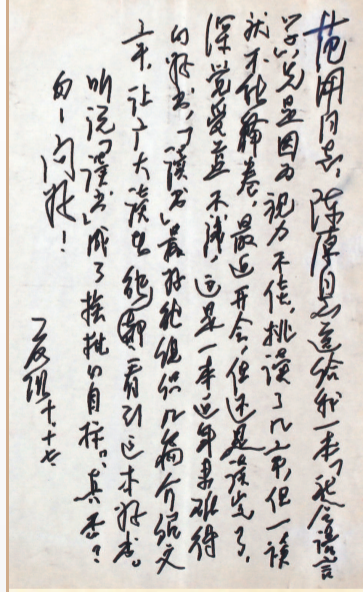 范用同志，陈原同志送给我一本《社会语言
学》，先是因为视力不佳，挑读了几章，但一读
就不能释卷，最近开会，但还是读完了，
深觉受益不浅，这是一本近年来难得
的好书，《读书》最好能组织几篇介绍文
章，让广大读者能都看到这本好书。
听说《读书》成了挨批的目标，真否？
匆匆问好！
夏衍 十、十七